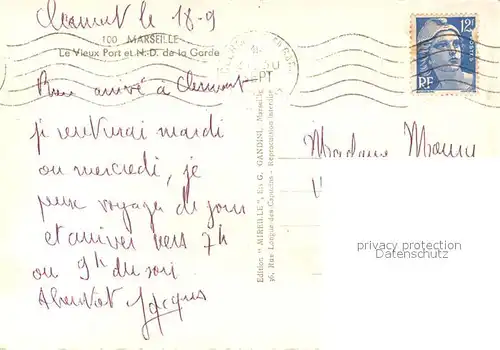 Clermont le 18-9
100 MARSEILLE
Le Vieux Port et N.-D. de la Garde
Bien arrivé à Clermont
je rentrerai mardi
ou mercredi, je
peux voyager de jour
et arriver vers 7h
ou 9h du soir.
A bientôt Jacques
Edition "MIREILLE", Ets G. GANDINI, Marseille
36, Rue Longue-des-Capucins - Reproduction interdite
12F
POSTES
RF
Madame
privacy protection
Datenschutz